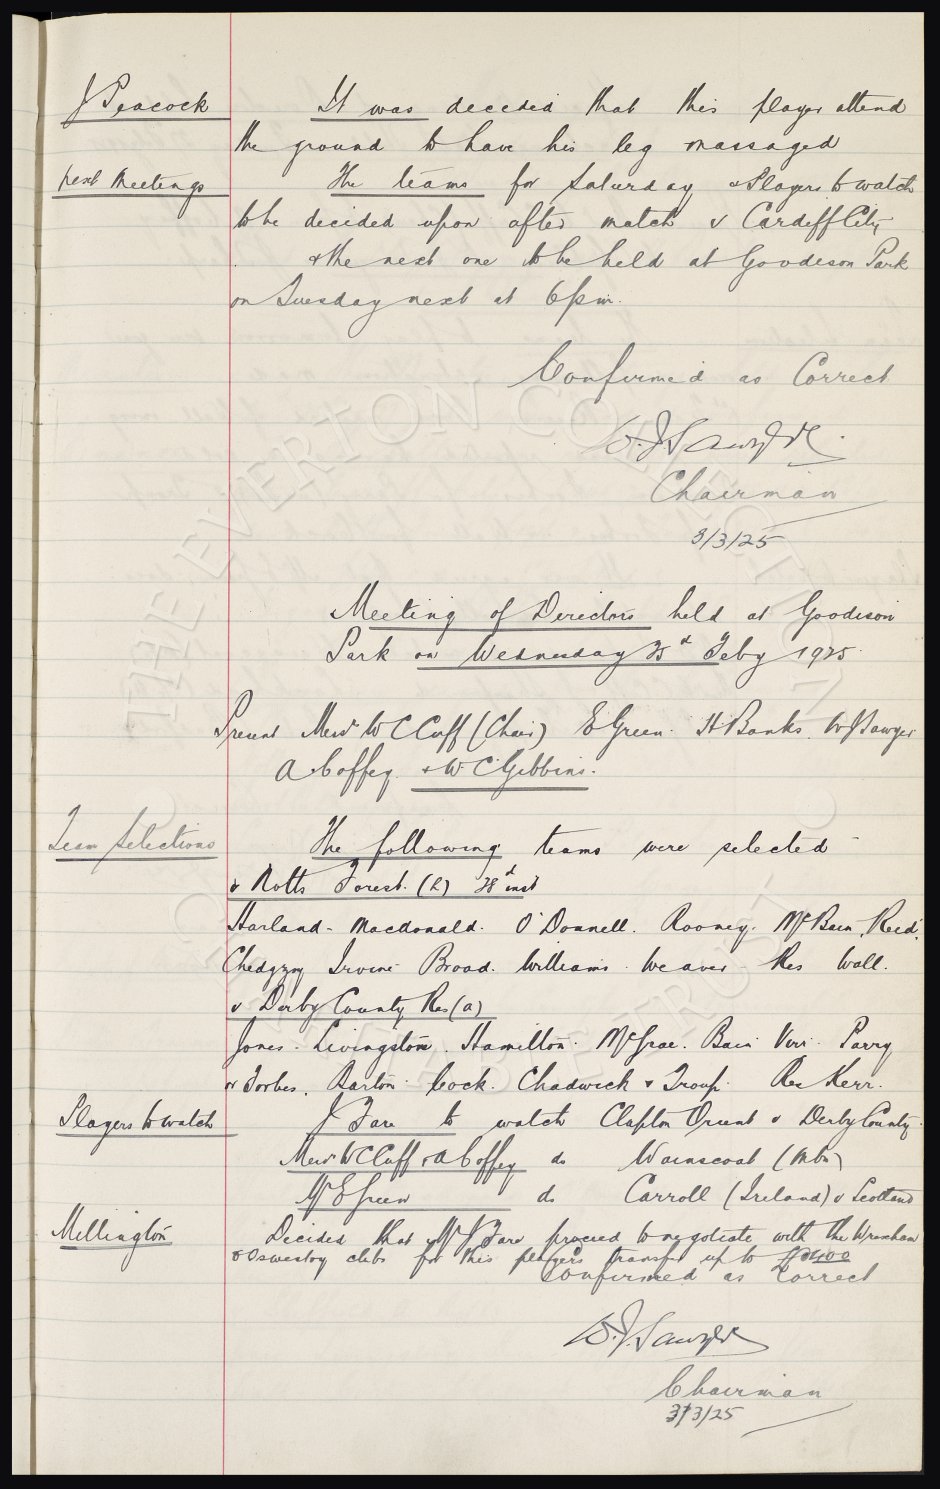 J Peacock
It was decided that this player attend
the ground to have his leg massaged
next Meetings
The teams for Saturday & Players to watch
to be decided upon after match v Cardiff City
& the next one to be held at Goodison Park
on Tuesday next at 6 p.m.
Confirmed as Correct
W.J. Sawyer
Chairman
3/3/25
Meeting of Directors held at Goodison
Park on Wednesday 25th Feby 1925
Present Messrs W C Cuff (Chair) E Green. H Banks. W J Sawyer
A Coffey. & W C Gibbins.
Team Selections
The following teams were selected
v Notts Forest. (R) 28th inst
Harland - Macdonald. O'Donnell. Rooney. McBain, Reid,
Chedgzoy Irvine Broad. Williams. Weaver Res Wall.
v Derby County Res (a)
Jones. Livingstone. Hamilton. McGrae. Bain Virr. Parry
or Forbes. Barton. Cock. Chadwick & Troup. Res Kerr.
Players to watch
J Fare to watch Clapton Orient v Derby County.
Messrs W C Cuff & A Coffey do Wainscoat (Mbro)
Mr E Green do Carroll (Ireland) v Scotland
Millington
Decided that Mr J Fare proceed to negotiate with the Wrexham
& Oswestry clubs for this players transfer up to £400
Confirmed as Correct
W.J. Sawyer
Chairman
3/3/25
THE EVERTON COLLECTION
CHARITABLE TRUST